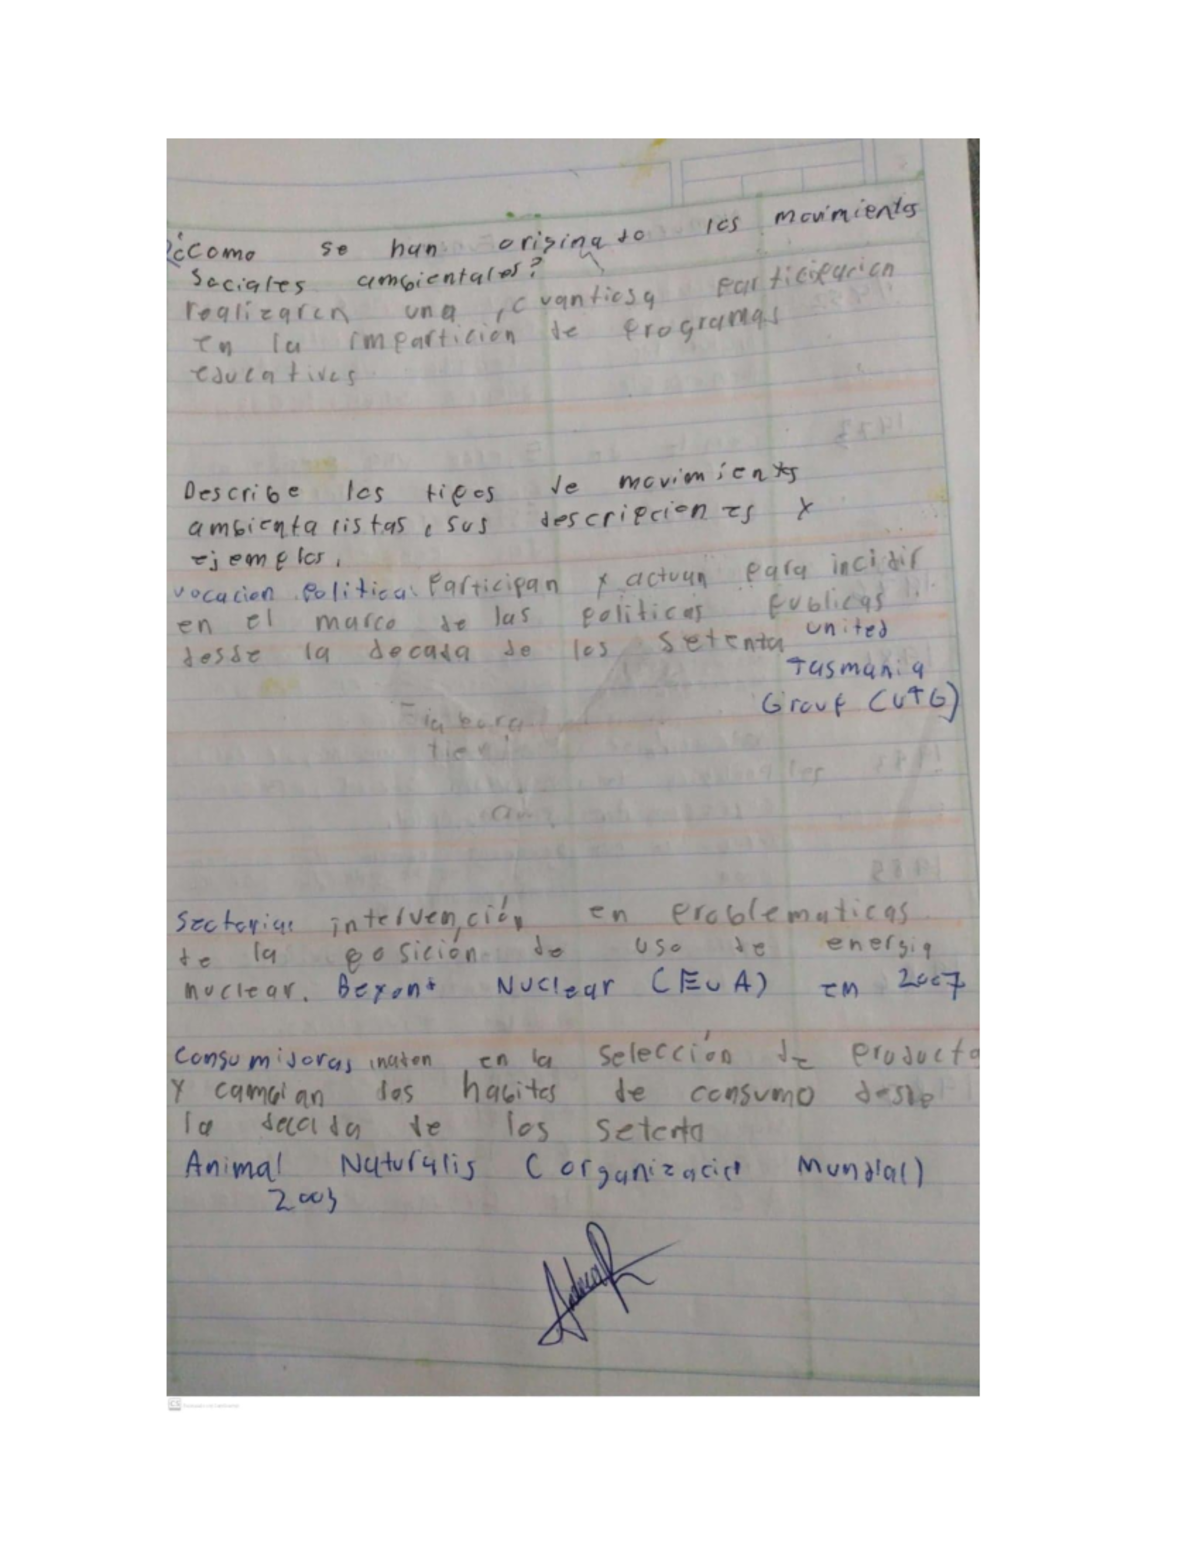 ¿Como se han originado los movimientos
Sociales ambientales?
realizaren una cuantiosa participacion
en la impartición de programas
educativos
Describe los tipos de movimientos
ambientalistas, sus descripciones y
ejemplos.
vocacion politica: Participan y actuan para incidir
en el marco de las politicas publicas
desde la decada de los setenta united
Tasmania
Group (UTG)
Sectorias intervención en problematicas
de la posición de uso de energia
nuclear. Beyont Nuclear (EUA) en 2007
Consumidoras inaten en la selección de producto
Y cambian dos habitos de consumo desde
la decada de los setenta
Animal Naturalis (organizacion Mundial)
2003